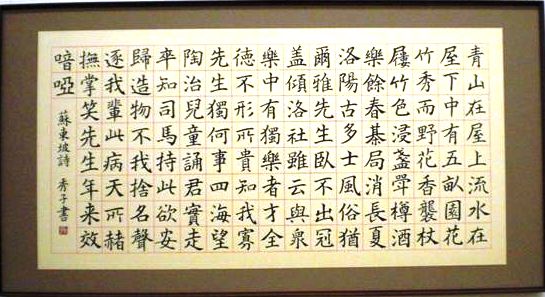 青山在屋上流水在
屋下中有五畝園花
竹秀而野花香襲杖
屨竹色浸盞斝樽酒
樂餘春棊局消長夏
洛陽古多士風俗猶
爾雅先生臥不出冠
盖傾洛社雖云與衆
樂中有獨樂者才全
德不形所貴知我寡
先生獨何事四海望
陶冶兒童誦君實走
卒知司馬持此欲安
歸造物不我捨名聲
逐我輩此病天所赭
撫掌笑先生年来效
喑啞
蘇東坡詩 秀子書